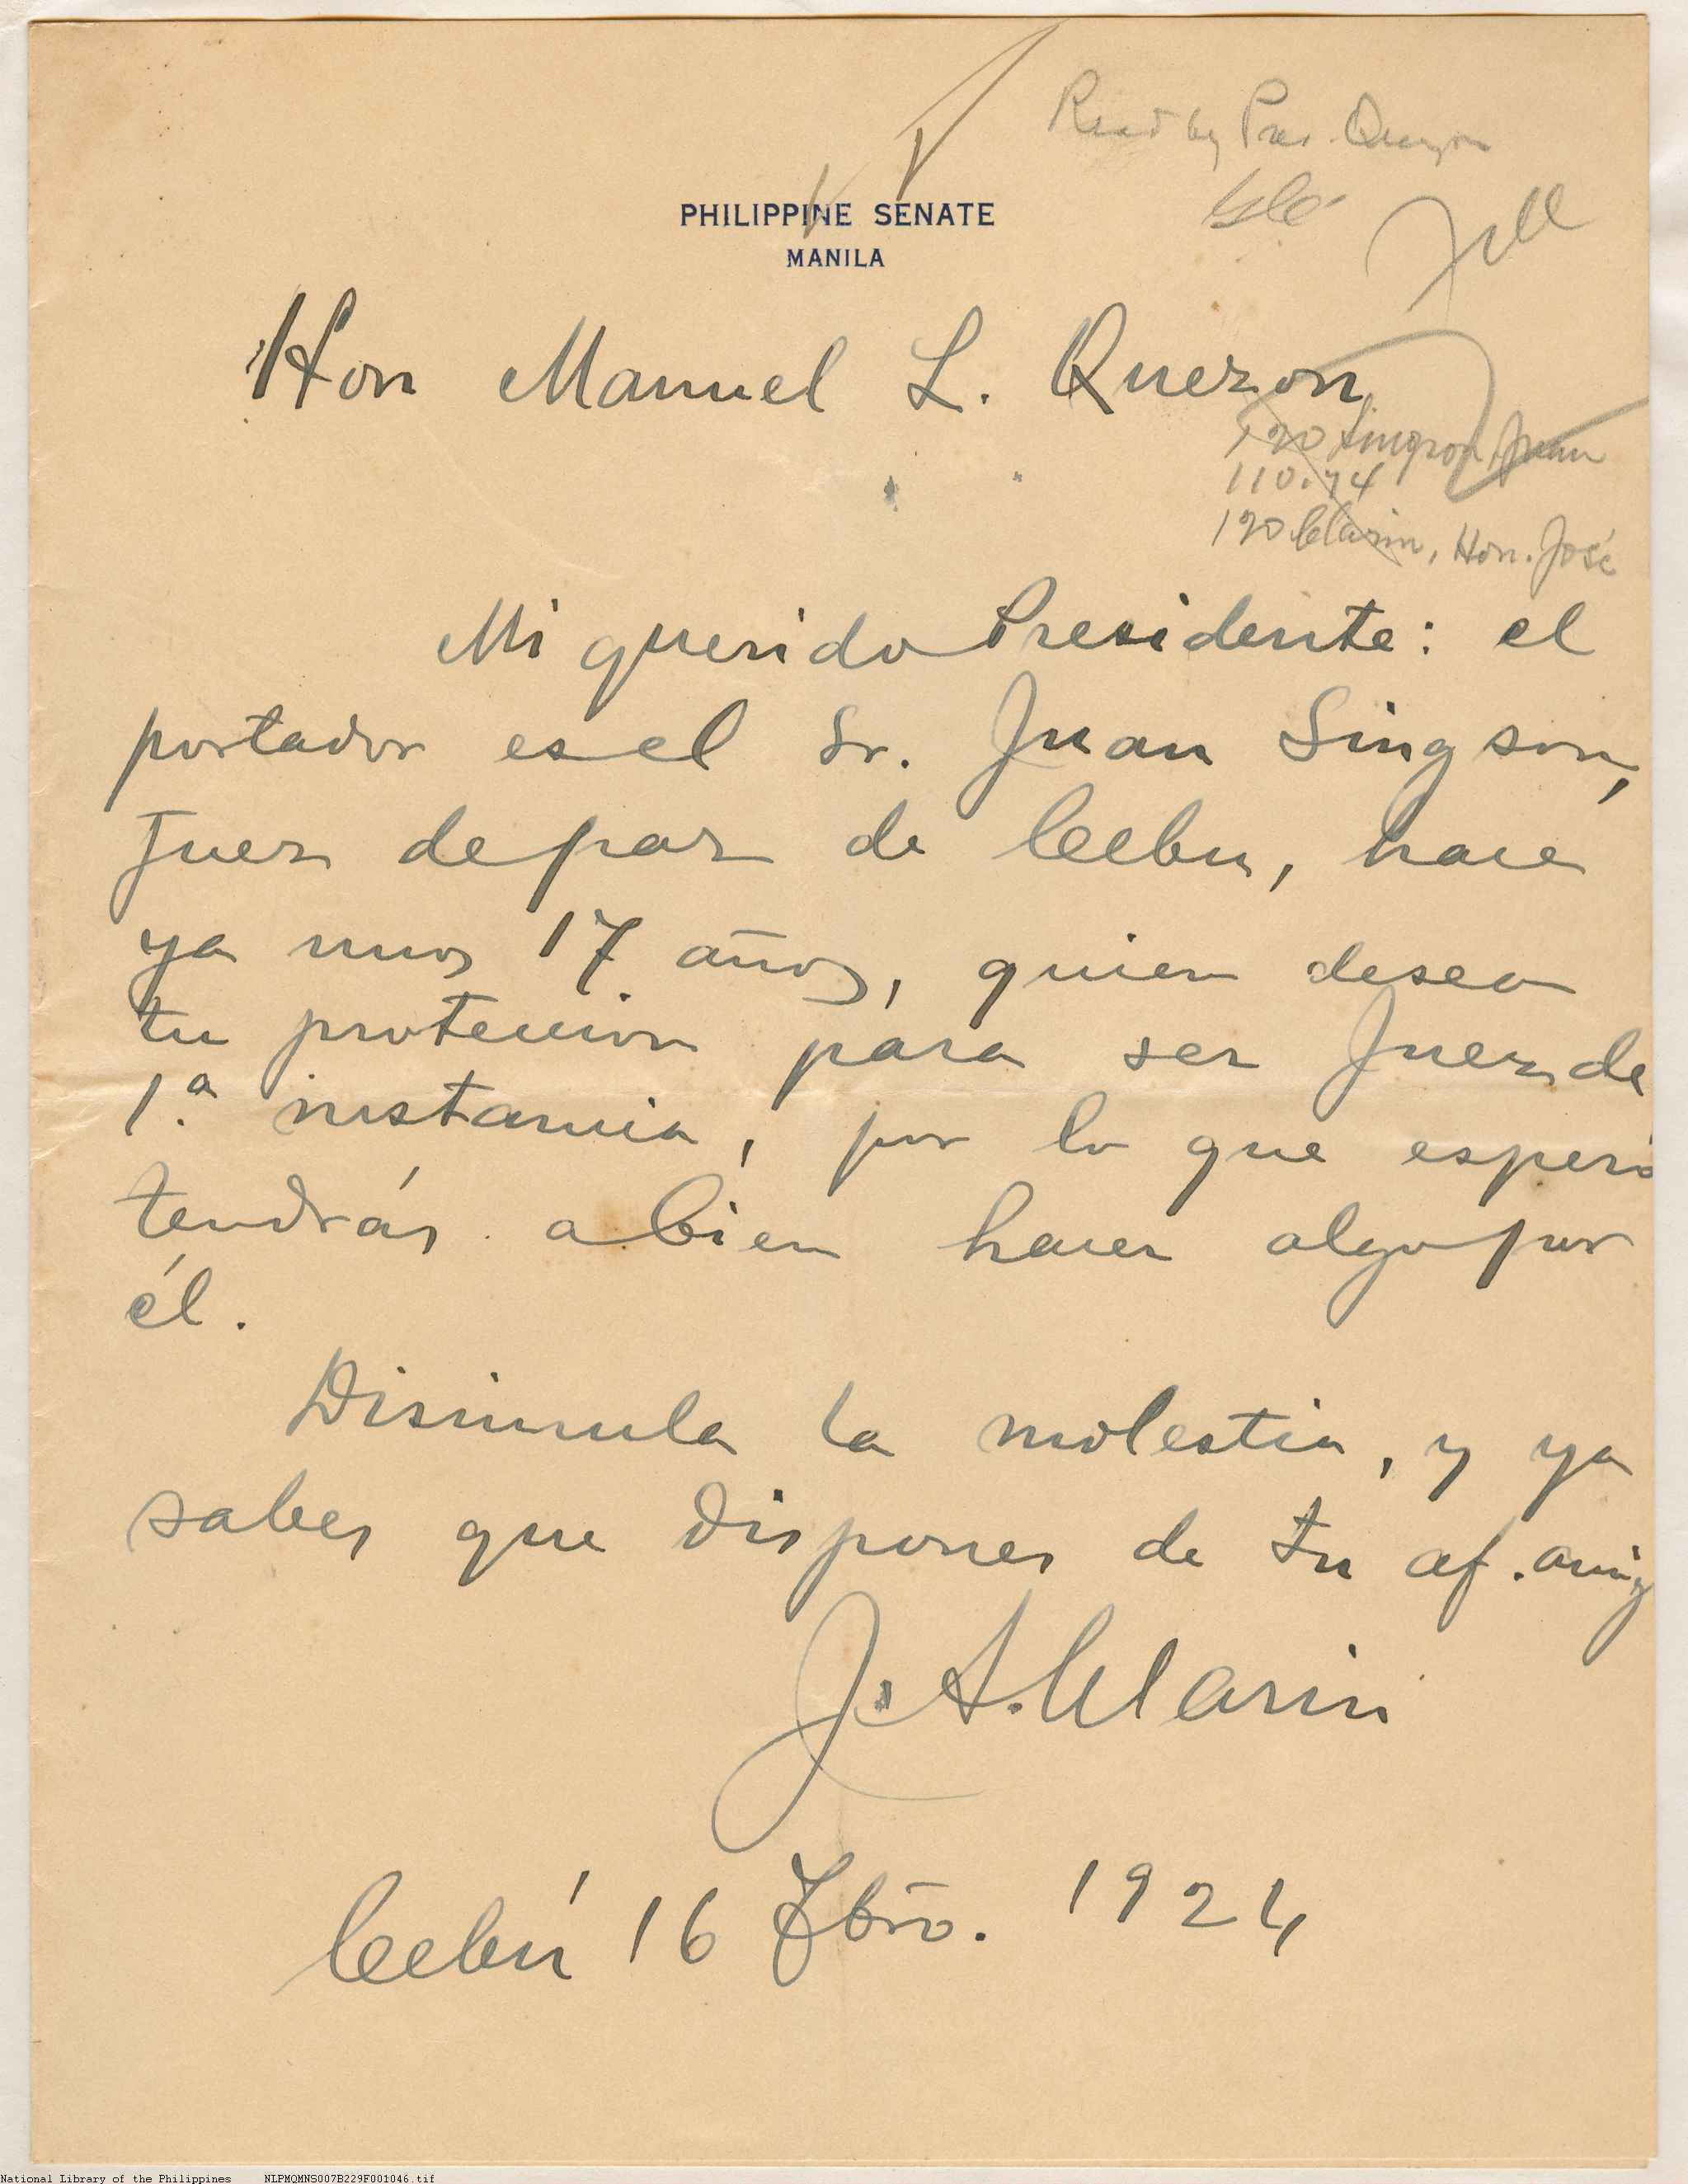 Read by Pres. Quezon
PHILIPPINE SENATE
MANILA
Hon Manuel L. Quezon
120 Singson, Juan
110.74
120 Clarin, Hon. José
Mi querido Presidente: el
portador es el Sr. Juan Singson,
Juez de paz de Cebu, hace
ya unos 17 años, quien desea
tu proteccion para ser Juez de
1.ª instancia, por lo que espero
tendrás a bien hacer algo por
él.
Disimula la molestia, y ya
sabes que dispones de tu af. amig
J. A. Clarin
Cebú 16 1924
National Library of the Philippines NLPMQMNS007B229F001046.tif